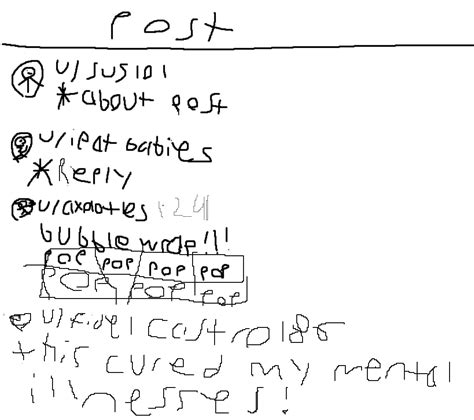 post
u/sus101
*about post
u/ieat babies
*Reply
u/axolotles 1241
bubble wrap!!!
pop pop pop pop
pop pop pop
u/fidel castro186
this cured my mental
illnesses!